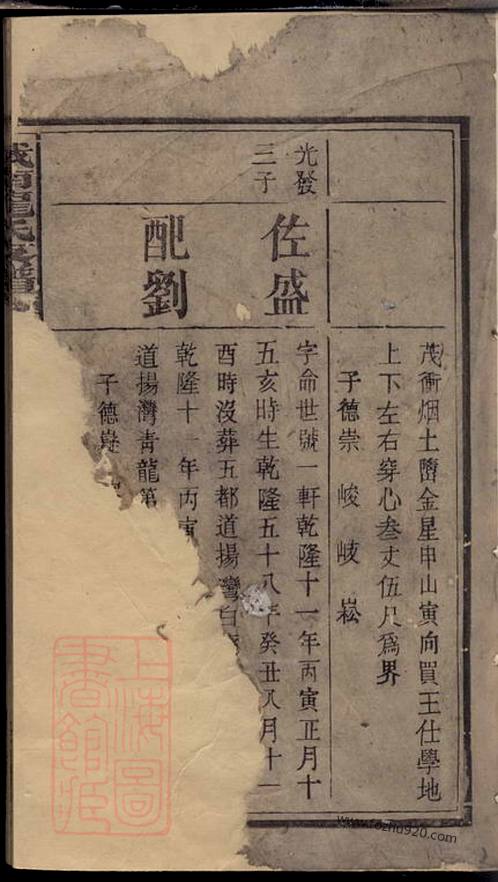 茂衝烟土嘴金星申山寅向買王仕學地
上下左右穿心叁丈伍尺為界
子德崇 峻 岐 崧
光發
三子
佐盛
字命世號一軒乾隆十一年丙寅正月十
五亥時生乾隆五十八年癸丑八月十一
酉時沒葬五都道揚灣白
配劉
乾隆十一年丙寅
道揚灣青龍
子德
南龍氏家譜
上海圖
書館藏
www.fozhu920.com